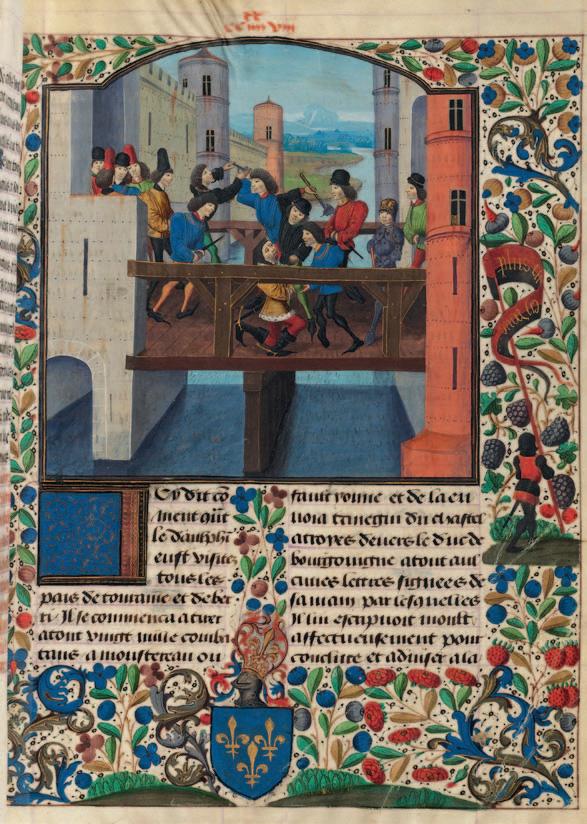 Cy dit cō
ment qūt
le dauphī
eust visite
tous les
pais de touraine et de ber
ri Il se commenca a tirer
atout vingt mille comba
tans a moustereau ou
fault yonne et de la en
uoia tanegui du chastel
a troyes deuers le duc de
bourgouigne atout aul
cunes lettres signees de
sa main par lesquelles
Il lui escripuoit moult
affectueusement pour
conclure et aduiser a la